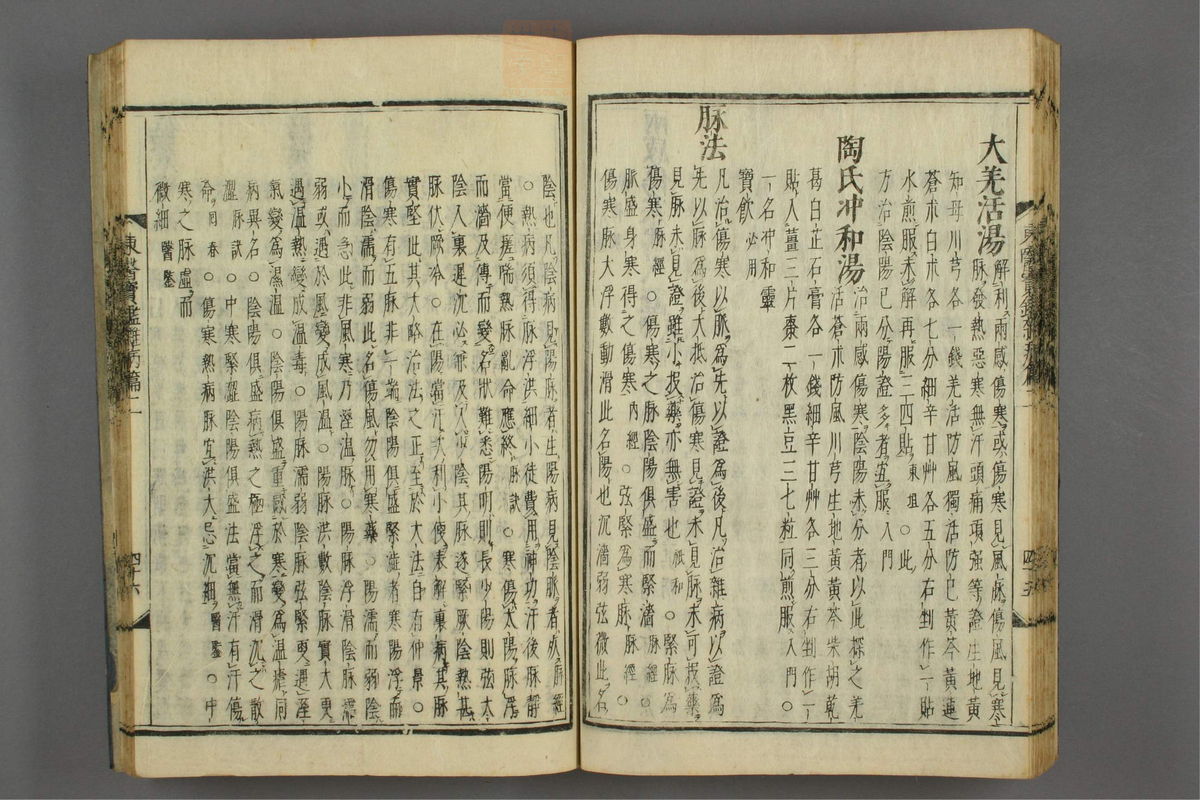 大羌活湯
解利兩感傷寒或傷寒見風脉傷風見寒
脉發熱惡寒無汗頭痛項强等證生地黃
知母川芎各一錢羌活防風獨活防己黃芩黃連
蒼朮白朮各七分細辛甘艸各五分右剉作一貼
水煎服未解再服三四貼東垣○此
方治陰陽已分陽證多者宜服入門
陶氏冲和湯
治兩感傷寒陰陽未分者以此探之羌
活蒼朮防風川芎生地黃黃芩柴胡乾
葛白芷石膏各一錢細辛甘艸各三分右剉作一
貼入薑三片棗二枚黑豆三七粒同煎服入門○
一名冲和靈
寶飮必用
脉法
凡治傷寒以脉爲先以證爲後凡治雜病以證爲
先以脉爲後大抵治傷寒見證未見脉未可投藥
見脉未見證雖小投藥亦無害也海和○緊脉爲
傷寒脉經○傷寒之脉陰陽俱盛而緊濇脉經○
脉盛身寒得之傷寒內經○弦緊爲寒脉脉經○
傷寒脉大浮數動滑此名陽也沉濇弱弦微此名
陰也凡陰病見陽脉者生陽病見陰脉者死脉經
○熱病須得脉浮洪細小徒費用神功汗後脉靜
當便瘥喘熱脉亂命應終脉訣○寒傷太陽脉浮
而濇及傳而變名狀難悉陽明則長少陽則弦太
陰入裏遲沉必兼及入少陰其脉遂緊厥陰熱甚
脉伏厥冷○在陽當汗次利小便表解裏病其脉
實堅此其大略治法之正至於大法自有仲景○
傷寒有五脉非一端陰陽俱盛緊澁者寒陽浮而
滑陰濡而弱此名傷風勿用寒藥○陽濡而弱陰
小而急此非風寒乃溼溫脉○陽脉浮滑陰脉濡
弱或遇於風變成風溫○陽脉洪數陰脉實大更
遇溫熱變成溫毒○陽脉濡弱陰脉弦緊更遇溼
氣變爲濕溫○陰陽俱盛重感於寒變爲溫瘧同
病異名○陰陽俱盛病熱之極浮之而滑沉之散
澁脉訣○中寒緊澁陰陽俱盛法當無汗有汗傷
命回春○傷寒熱病脉宜洪大忌沉細醫鑑○中
寒之脉虛而
微細醫鑑
東醫寶鑑雜病篇二
四十五
東醫寶鑑雜病篇二
四十六